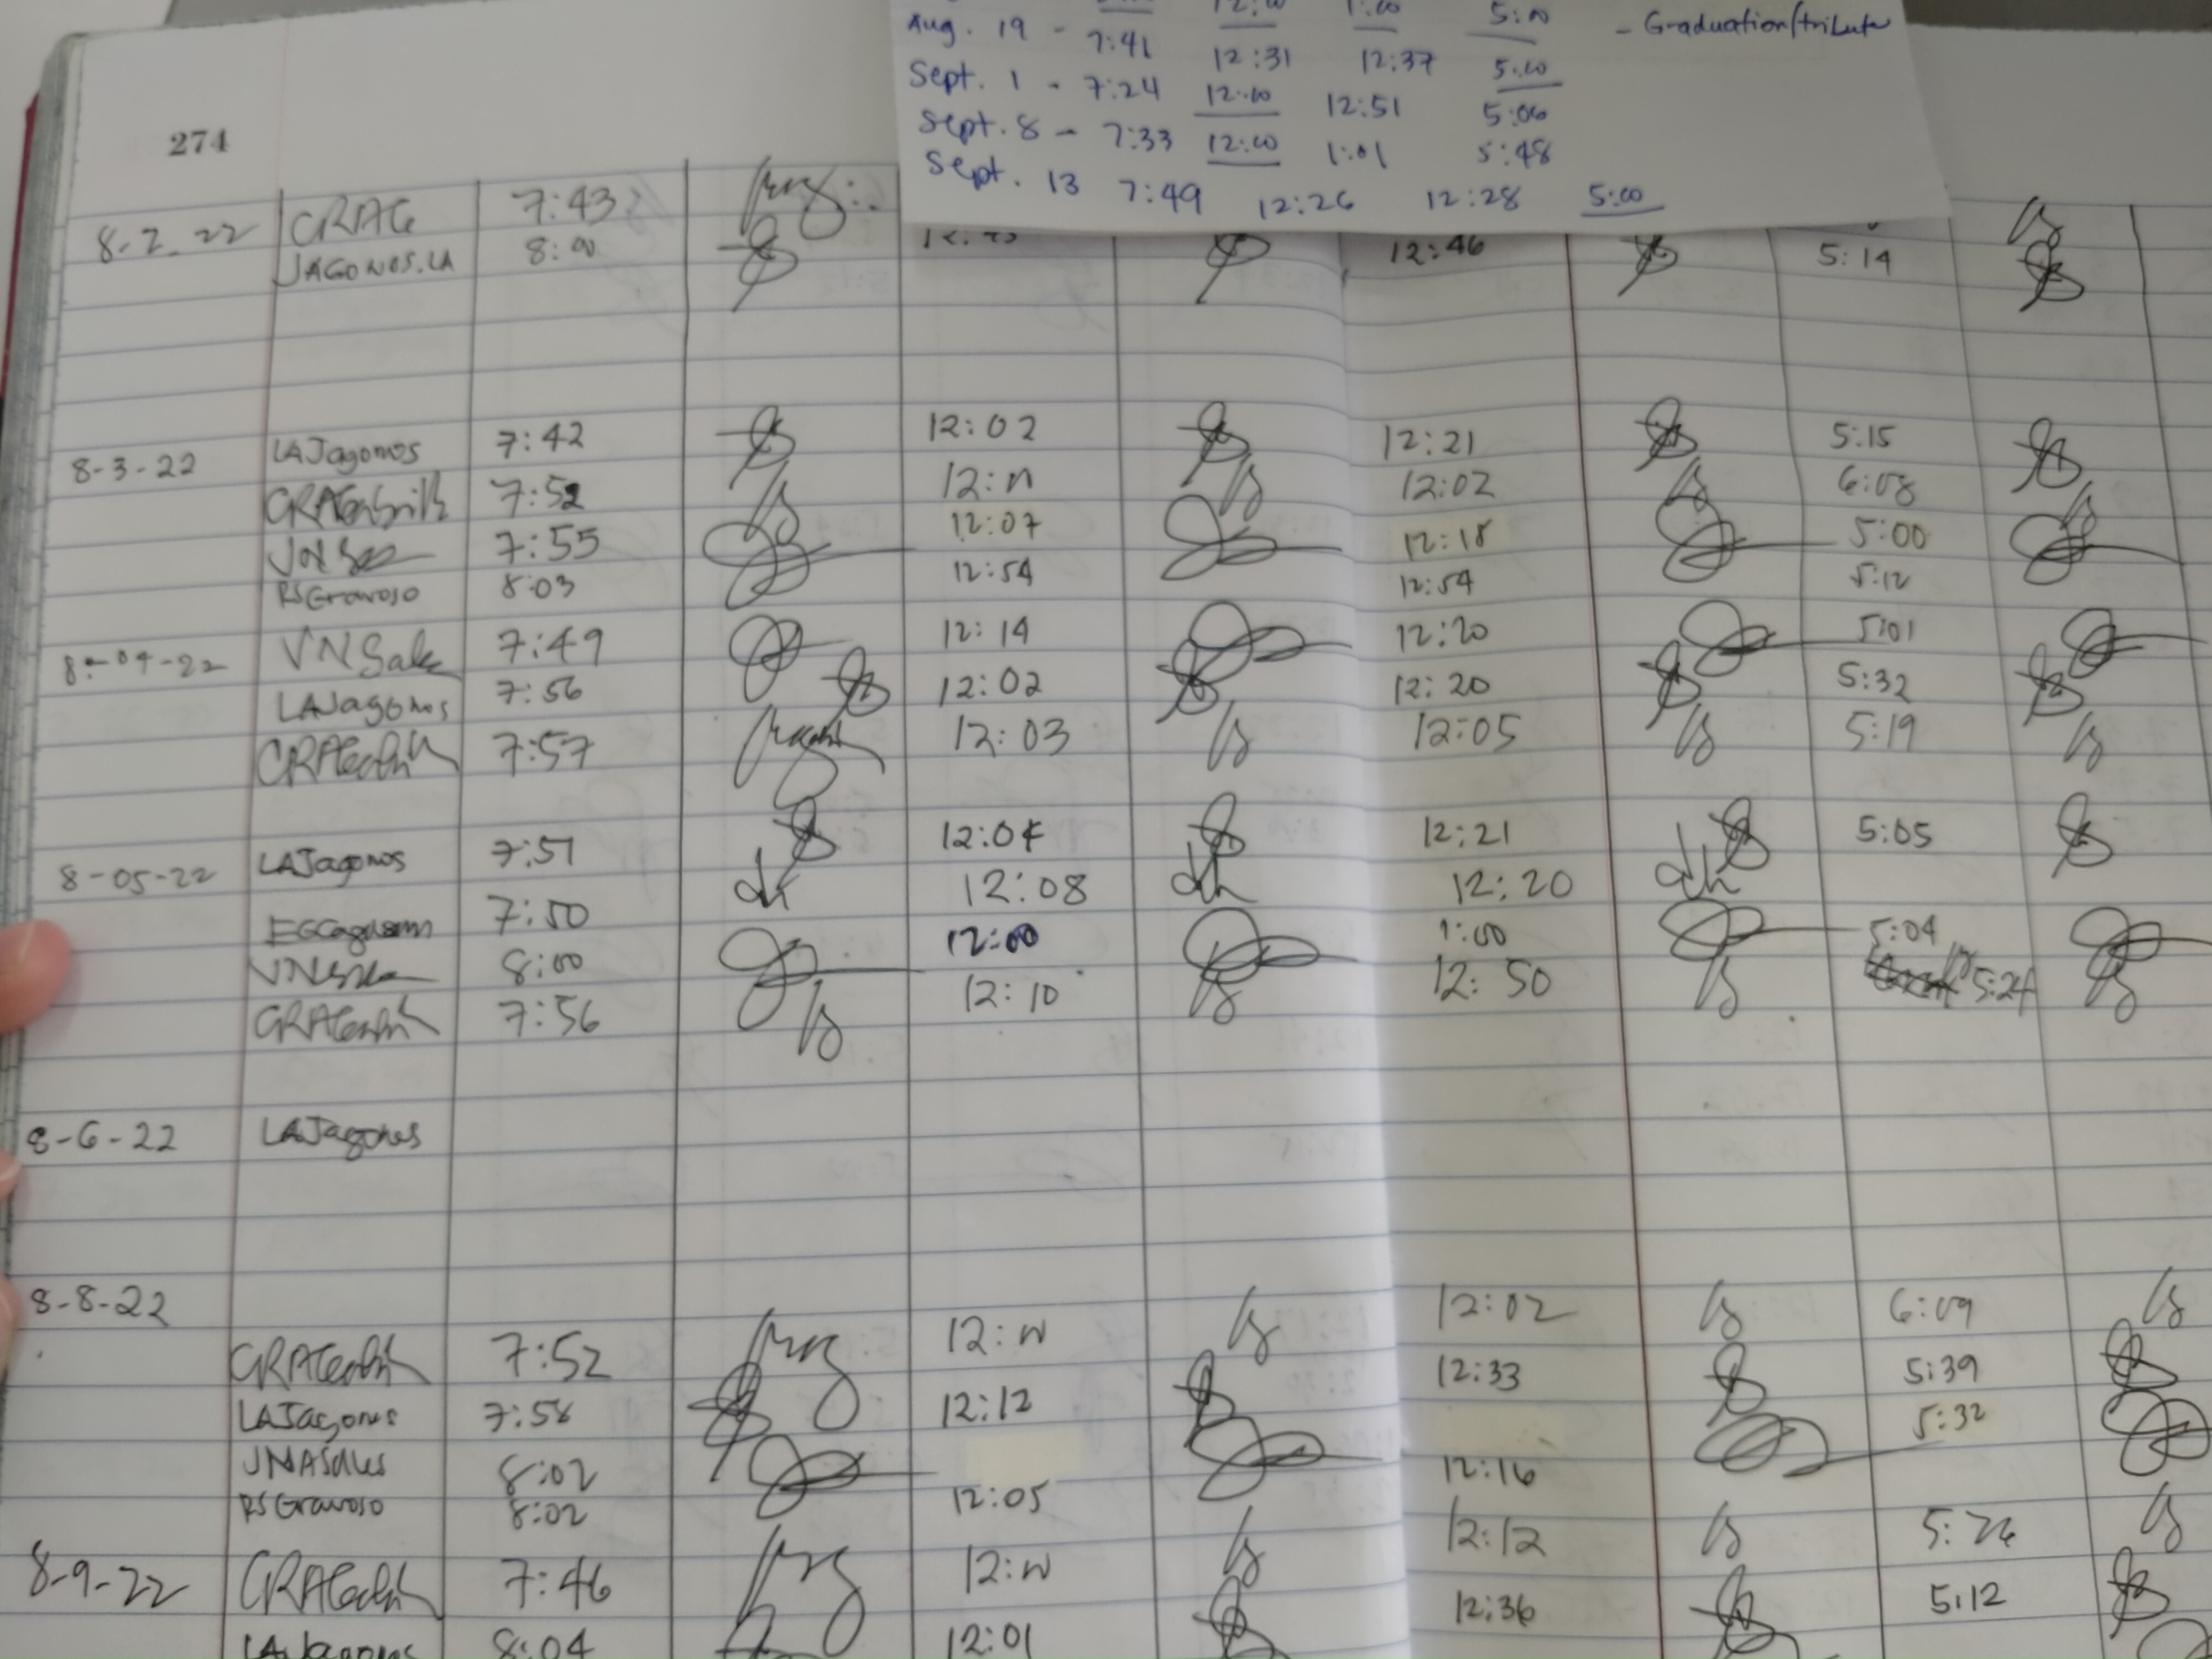 Aug. 19 - 7:41 12:31 12:37 5:00 - Graduation/tribute
Sept. 1 - 7:24 12:00 12:51 5:06
Sept. 8 - 7:33 12:00 1:01 5:48
Sept. 13 7:49 12:26 12:28 5:00
274
8-2-22 CRAG 7:43
JAGONOS.LA 8:00 12:46 5:14
8-3-22 LAJagonos 7:42 12:02 12:21 5:15
7:52 12:02 6:08
7:55 12:07 12:18 5:00
RSGravoso 8:03 12:54 12:54 5:12
8-04-22 VNSale 7:49 12:14 12:20 5:01
LAJagonos 7:56 12:02 12:20 5:32
7:57 12:03 12:05 5:19
8-05-22 LAJagonos 7:51 12:04 12:21 5:05
7:50 12:08 12:20
8:00 12:00 1:00 5:04
7:56 12:10 12:50 5:24
8-6-22 LAJagonos
8-8-22
7:52 12:02 6:09
LAJagonos 7:58 12:12 12:33 5:39
8:02 5:32
RSGravoso 8:02 12:05 12:16
8-9-22 7:46 12:12 5:26
LAJagonos 8:04 12:01 12:36 5:12